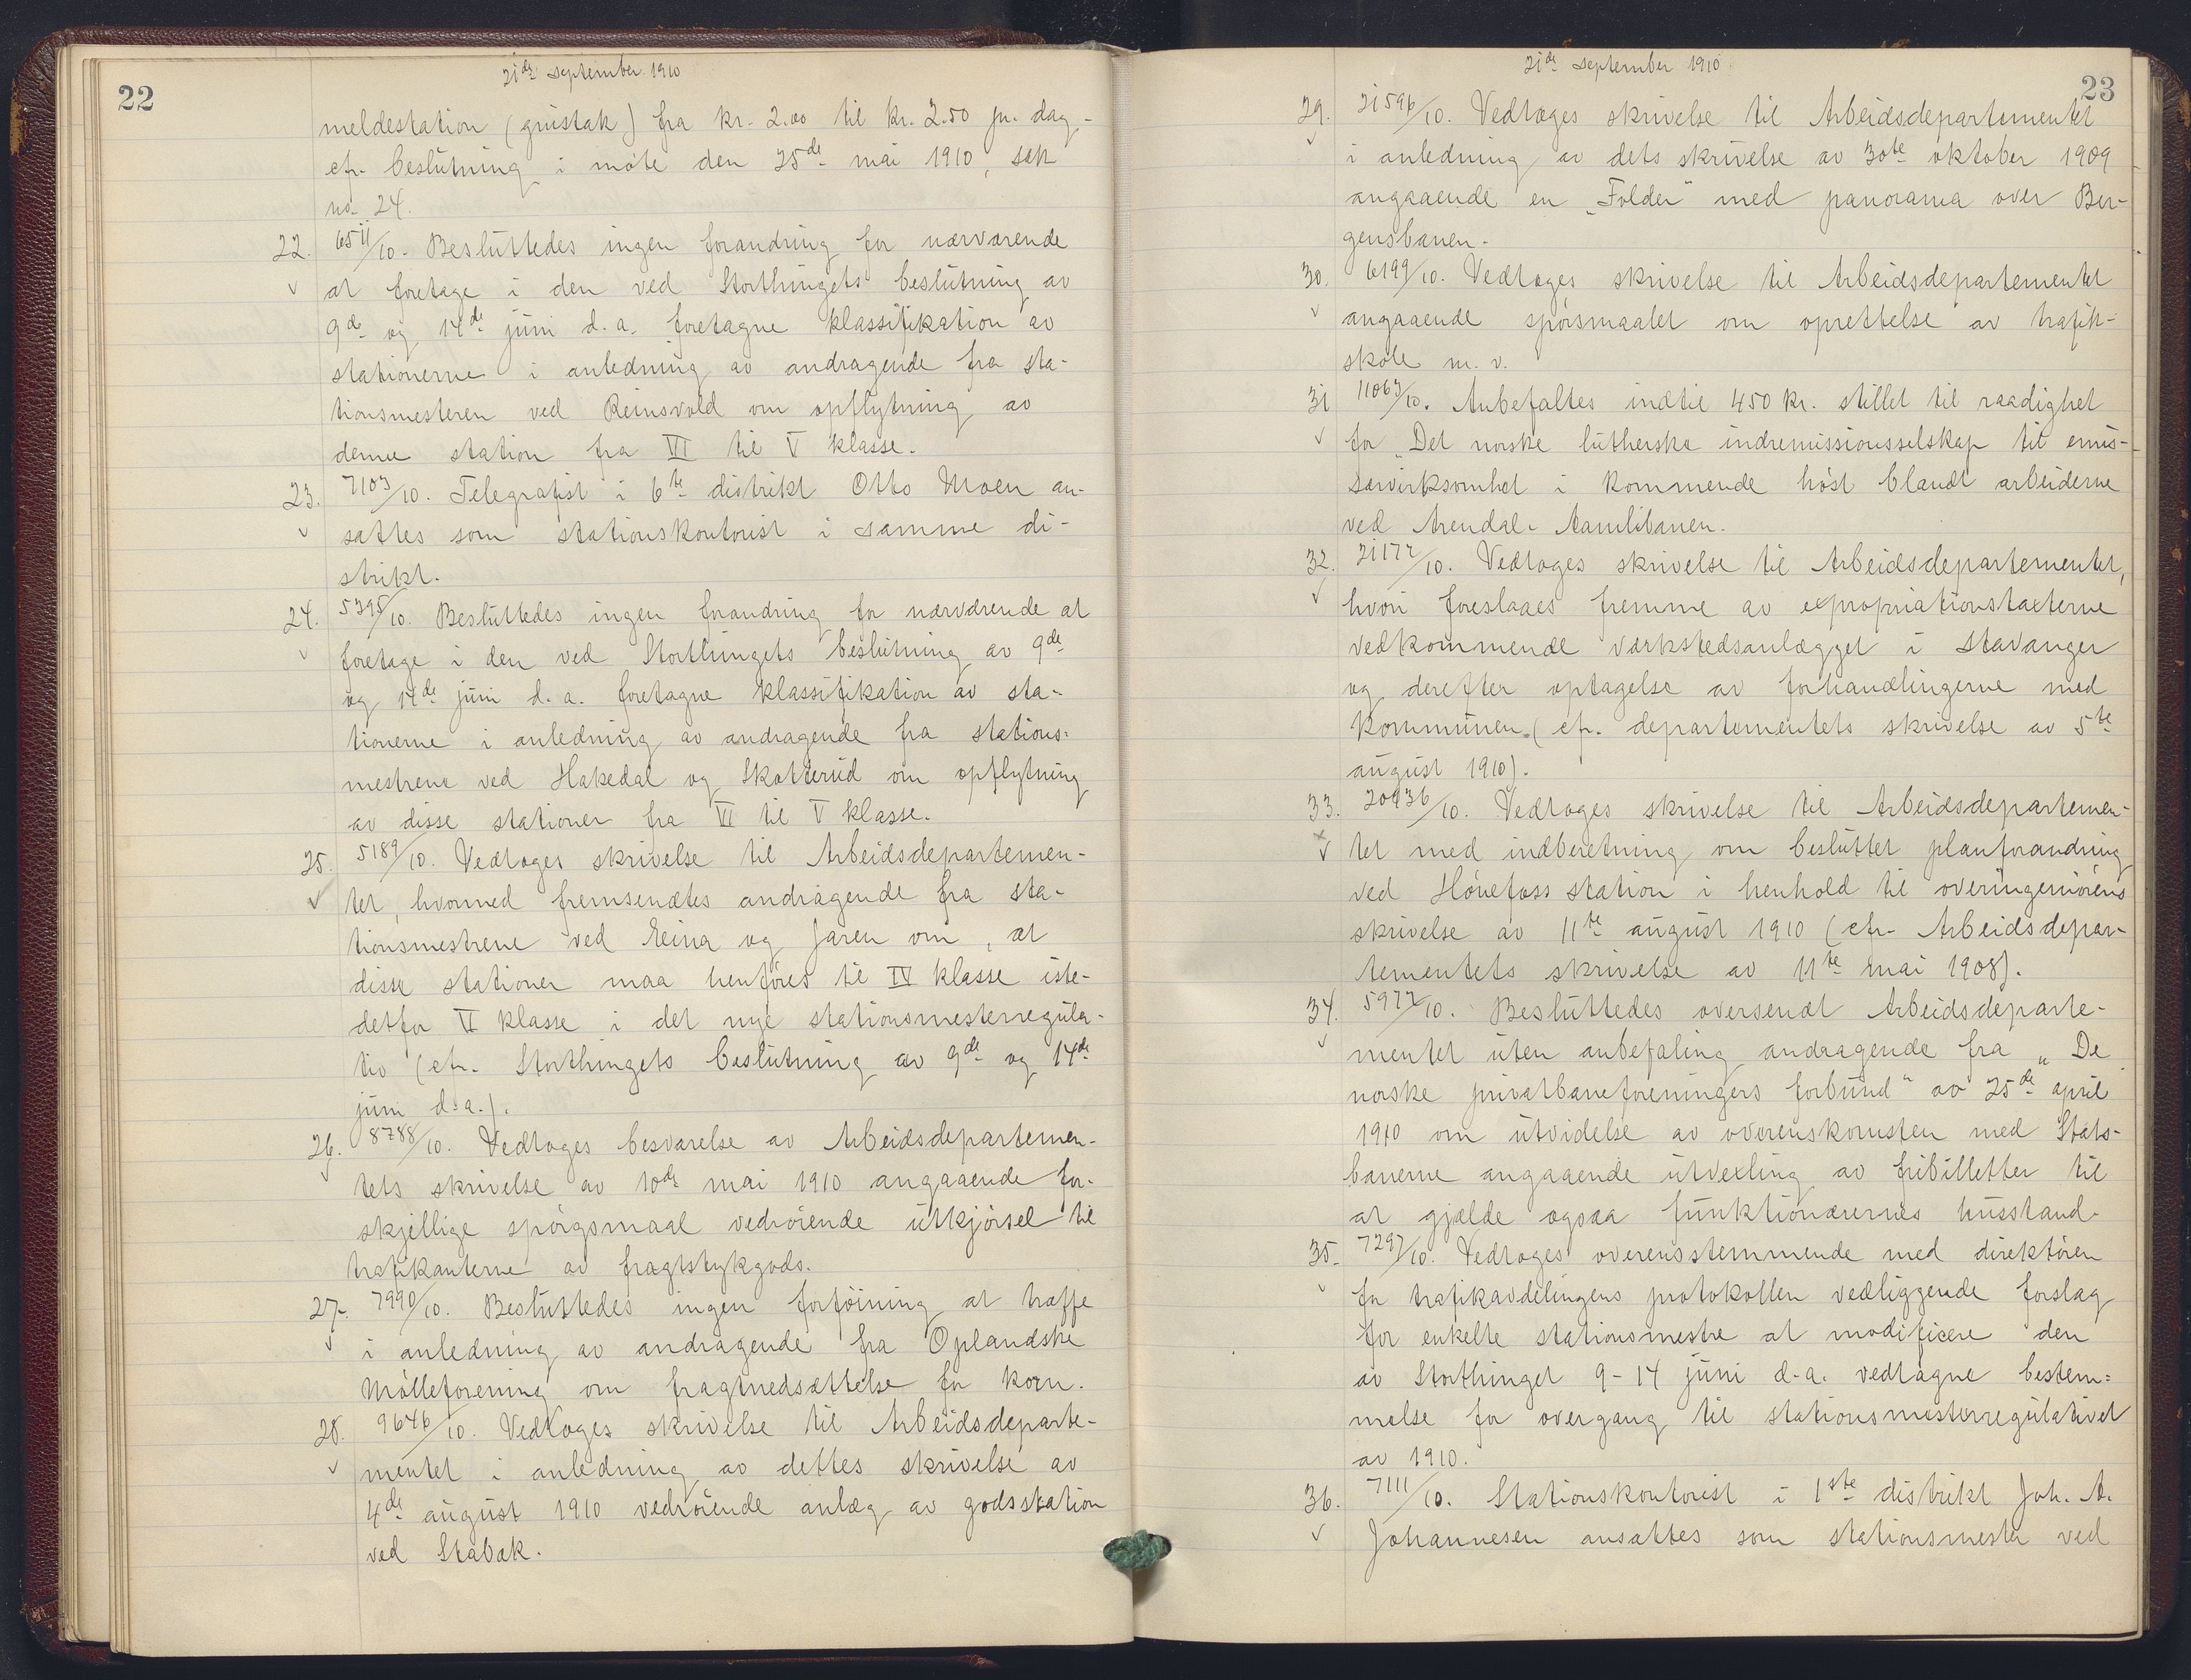 22
21de september 1910
meldestation (grustak) fra kr. 2.00 til kr. 2.50 pr. dag,
cfr. beslutning i møte den 25de mai 1910, sak
no. 24.
22. 6511/10. Besluttedes ingen forandring for nærværende
at foretage i den ved Storthingets beslutning av
9de og 14de juni d. a. foretagne klassifikation av
stationerne i anledning av andragende fra sta-
tionsmesteren ved Reinsvold om opflytning av
denne station fra VI til V klasse.
23. 7103/10. Telegrafist i 6te distrikt Otto Moen an-
sattes som stationskontorist i samme di-
strikt.
24. 5395/10. Besluttedes ingen forandring for nærværende at
foretage i den ved Storthingets beslutning av 9de
og 14de juni d. a. foretagne klassifikation av sta-
tionerne i anledning av andragende fra stations-
mestrene ved Hakedal og Skotterud om opflytning
av disse stationer fra VI til V klasse.
25. 5189/10. Vedtoges skrivelse til Arbeidsdepartemen-
tet, hvormed fremsendtes andragende fra sta-
tionsmestrene ved Eina og Jaren om, at
disse stationer maa henføres til IV klasse iste-
detfor V klasse i det nye stationsmesterregula-
tiv (cfr. Storthingets beslutning av 9de og 14de
juni d. a.).
26. 8788/10. Vedtoges besvarelse av Arbeidsdepartemen-
tets skrivelse av 10de mai 1910 angaaende for-
skjellige spørgsmaal vedrørende utkjørsel til
trafikanterne av fragtstykgods.
27. 7990/10. Besluttedes ingen forføining at træffe
i anledning av andragende fra Oplandske
Mølleforening om fragtnedsættelse for korn.
28. 9646/10. Vedtoges skrivelse til Arbeidsdeparte-
mentet i anledning av dettes skrivelse av
4de august 1910 vedrørende anlæg av godsstation
ved Stabæk.
23
21de september 1910
29. 21596/10. Vedtoges skrivelse til Arbeidsdepartementet
i anledning av dets skrivelse av 30te oktober 1909
angaaende en "Folder" med panorama over Ber-
gensbanen.
30. 6199/10. Vedtoges skrivelse til Arbeidsdepartementet
angaaende spørsmaalet om oprettelse av trafik-
skole m. v.
31 11063/10. Anbefaltes indtil 450 kr. stillet til raadighet
for "Det norske lutherske indremissionsselskap til emis-
særvirksomhet i kommende høst blandt arbeiderne
ved Arendal-Aamlibanen.
32. 21172/10. Vedtoges skrivelse til Arbeidsdepartementet,
hvori foreslaaes fremme av expropriationstaxterne
vedkommende værkstedsanlægget i Stavanger
og derefter optagelse av forhandlingerne med
kommunen (cfr. departementets skrivelse av 5te
august 1910).
33. 20936/10. Vedtoges skrivelse til Arbeidsdepartemen-
tet med indberetning om besluttet planforandring
ved Hønefoss station i henhold til overingeniørens
skrivelse av 11te august 1910 (cfr. Arbeidsdepar-
tementets skrivelse av 11te mai 1908).
34. 5977/10. Besluttedes oversendt Arbeidsdeparte-
mentet uten anbefaling andragende fra "De
norske privatbaneforeningers forbund" av 25de april
1910 om utvidelse av overenskomsten med Stats-
banerne angaaende utvexling av fribilletter til
at gjælde ogsaa funktionærernes husstand.
35. 7297/10. Vedtoges overensstemmende med direktøren
for trafikavdelingens protokollen vedliggende forslag
for enkelte stationsmestre at modificere den
av Storthinget 9-14 juni d. a. vedtagne bestem-
melse for overgang til stationsmesterregulativet
av 1910.
36. 7111/10. Stationskontorist i 1ste distrikt Joh. A.
Johannesen ansattes som stationsmester ved